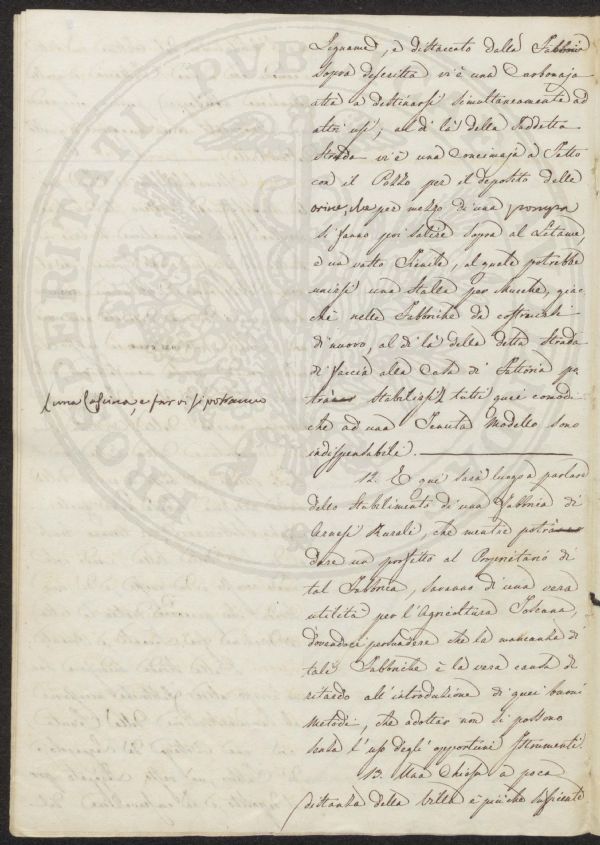 Legname, e distaccato dalla Fabbrica
sopra descritta vi è una Carbonaja
atta a destinarsi simultaneamente ad
altri usi, al di là della suddetta
Strada vi è una Concimaja a Tetto
con il Pozzo per il deposito delle
orine, che per mezzo di una pompa
si fanno poi salire sopra al Letame,
e un vasto Fienile, al quale potrebbe
unirsi una stalla per Mucche, giac
chè nelle Fabbriche da costruirsi
di nuovo, al di là della detta Strada
di faccia alla Casa di Fattoria po
stabilirsi tutti quei comodi
( una Cascina, e farvisi potranno
che ad una Tenuta Modello sono
indispensabili.
12. E qui sarà luogo a parlare
dello Stabilimento di una Fabbrica di
Arnesi Rurali, che mentre potrà
dare un profitto al Proprietario di
tal Fabbrica, saranno di una vera
utilità per l'Agricoltura Toscana,
dovendoci persuadere che la mancanza di
tali Fabbriche è la vera causa di
ritardo all'introduzione di quei buoni
Metodi, che adottar non si possono
senza l'uso degl'opportuni Istrumenti.
13. Una Chiesa a poca
distanza della Villa è più che sufficiente
PROSPERITATI PUBLICAE